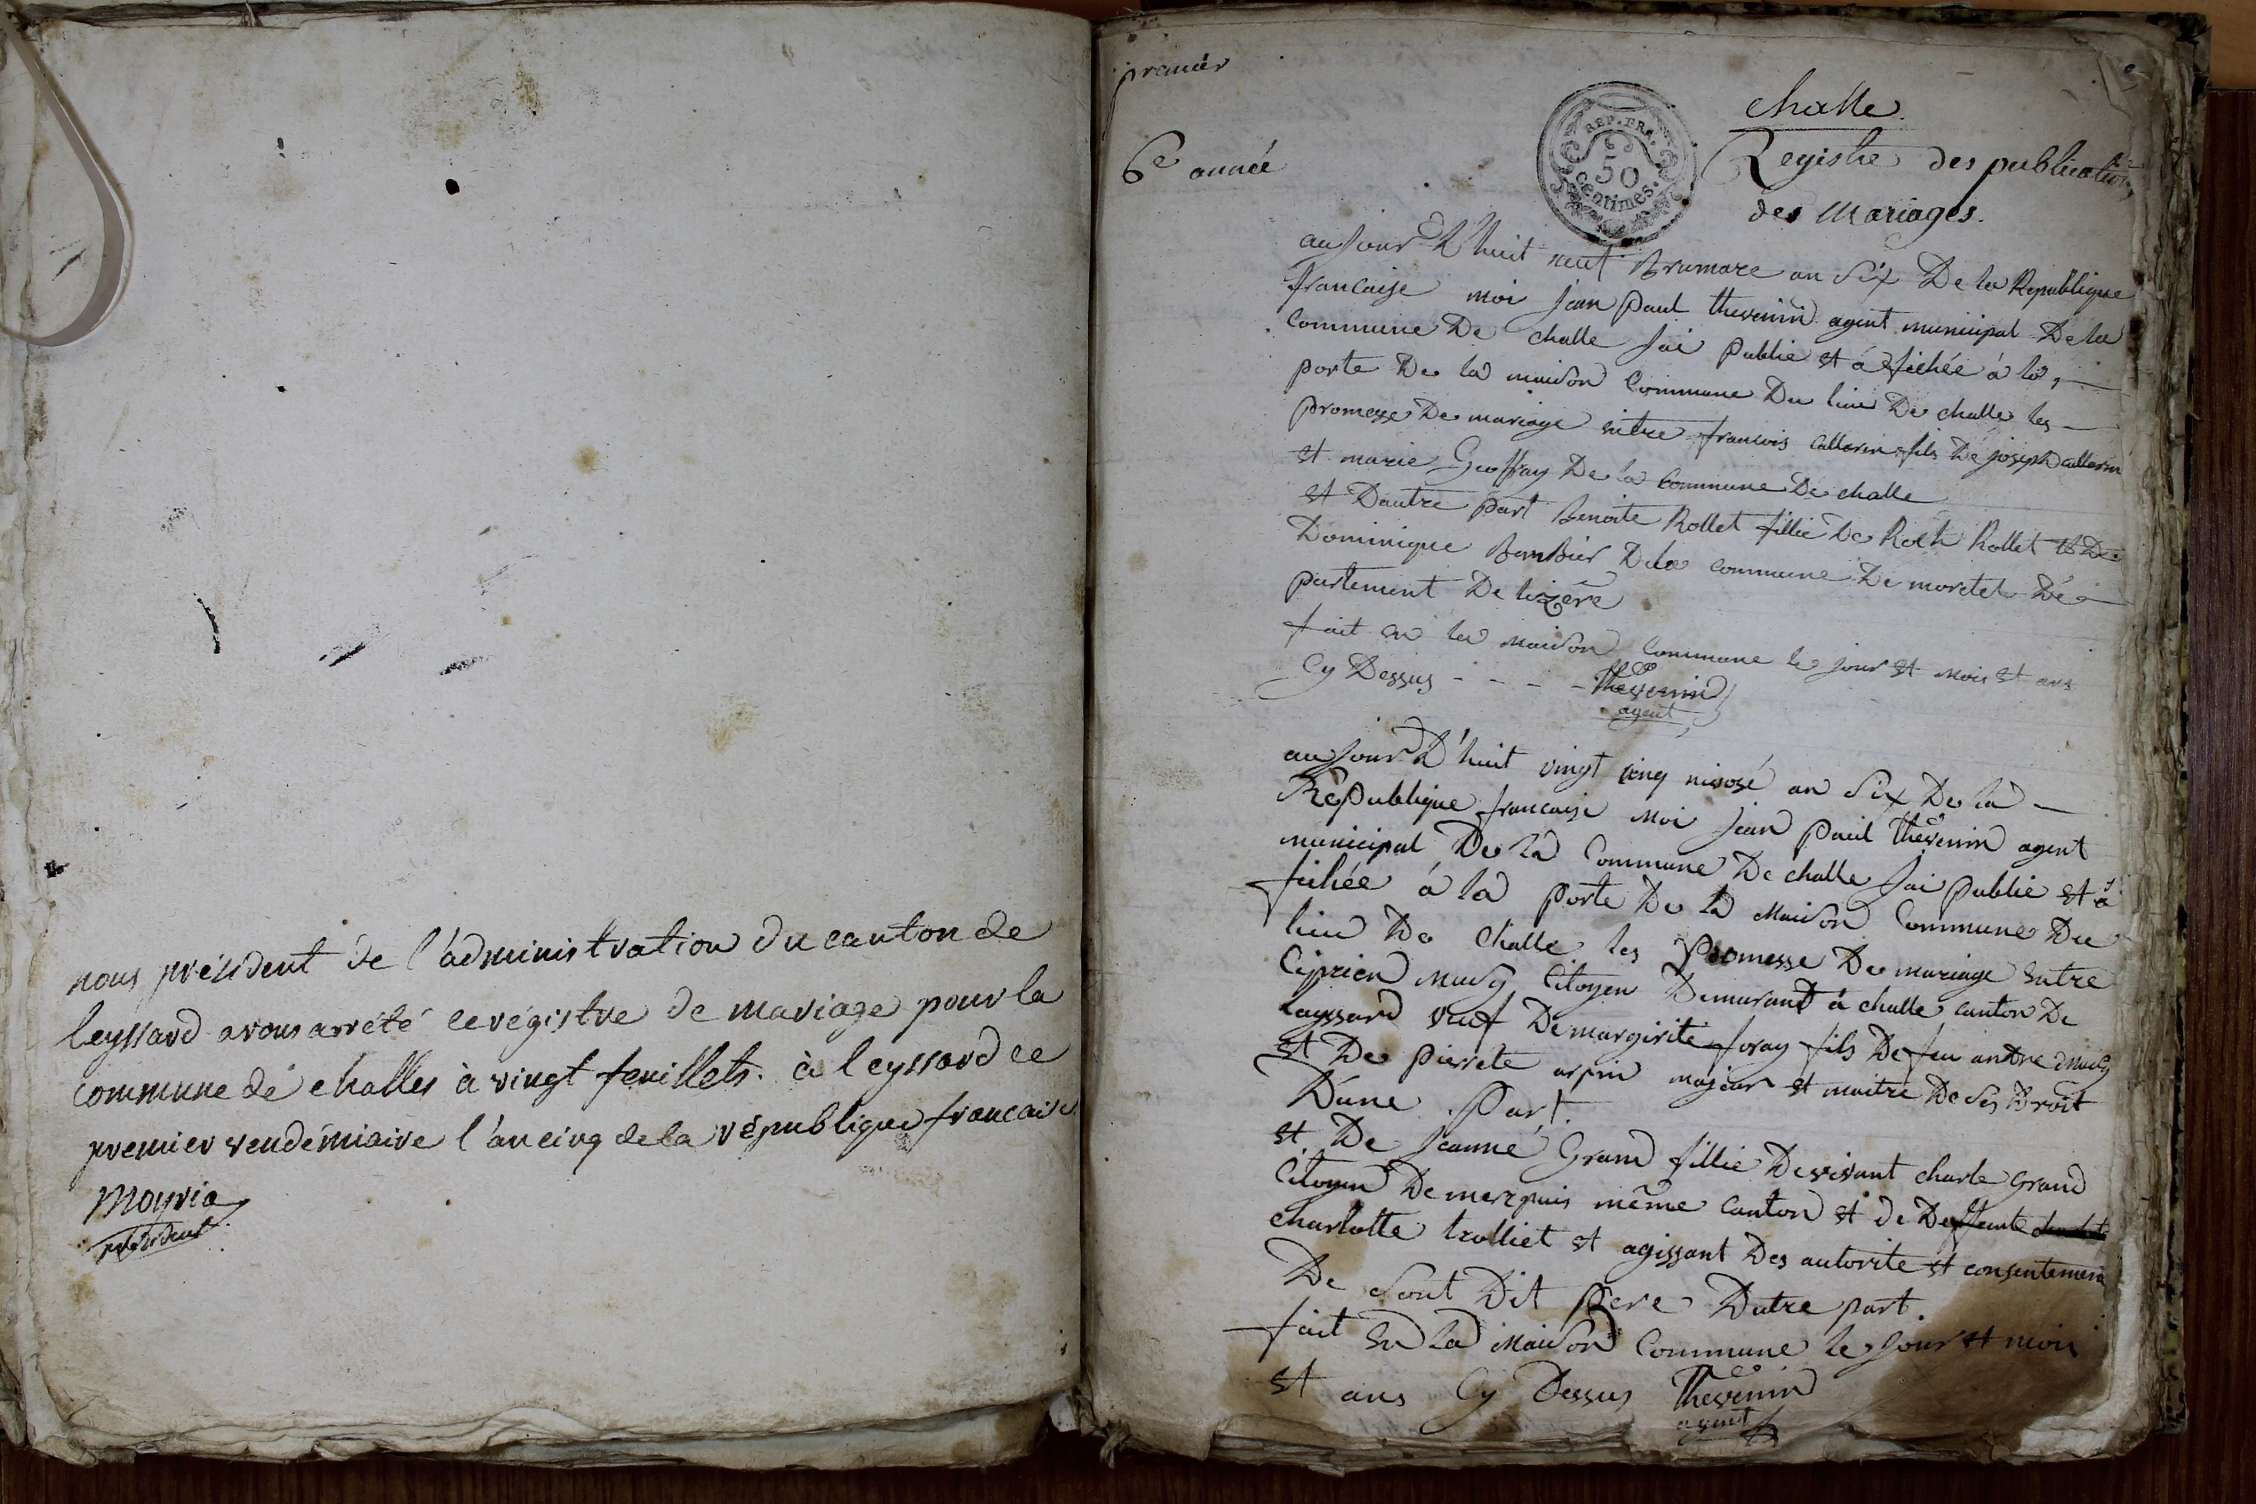 nous président de l'administration du canton de
leyssard avons arrété ce régistre de mariage pour la
commune de challes à vingt feuillets. à leyssard ce
premier vendémiaire l'an cinq de la république francaise
Moyria
président
premier
6e année
REP. FRA.
50
centimes.
challe.
Registre des publications
des Mariages.
au jour d'huit neuf Brumare an Six De la Republique
francaise moi jean paul thevenin agent municipal De la
Commune De challe jai publié et áfichée á la
porte De la maison Commune Du lieu De challe les
promesse De mariage entre francois fils De joseph
et marie Geoffray De la Commune De challe
et Dautre part Benoite Rollet fillie De Roch Rollet et De
Dominique Bombier Dela commune De moretel Dé
partement De lizere
fait en la maison Commune le jour et mois et ans
Cy Dessus - - - - Thevenin
agent
au jour D'huit vingt cinq nivosé an Six De la
Republique francaise moi jean paul thevenin agent
municipal De la Commune De challe jai publié et á
fichée á la porte De la maison Commune Du
lieu De challe les promesse De mariage entre
Ciprien citoyen Demurant á challe canton De
layssard veuf De margirite foray fils De feu andre
et De pierrete arpin majeur et maitre De Ses Droit
Dune Part
et De jeanne Grand fillie De vivant charle Grand
Citoyen De merpuis même Canton et de Deffunte
charlotte trolliet et agissant Des autorite et consentemen
De Sout Dit pere Dutre part.
fait en la maison Commune le jour et mois
et ans Cy Dessus Thevenin
agent